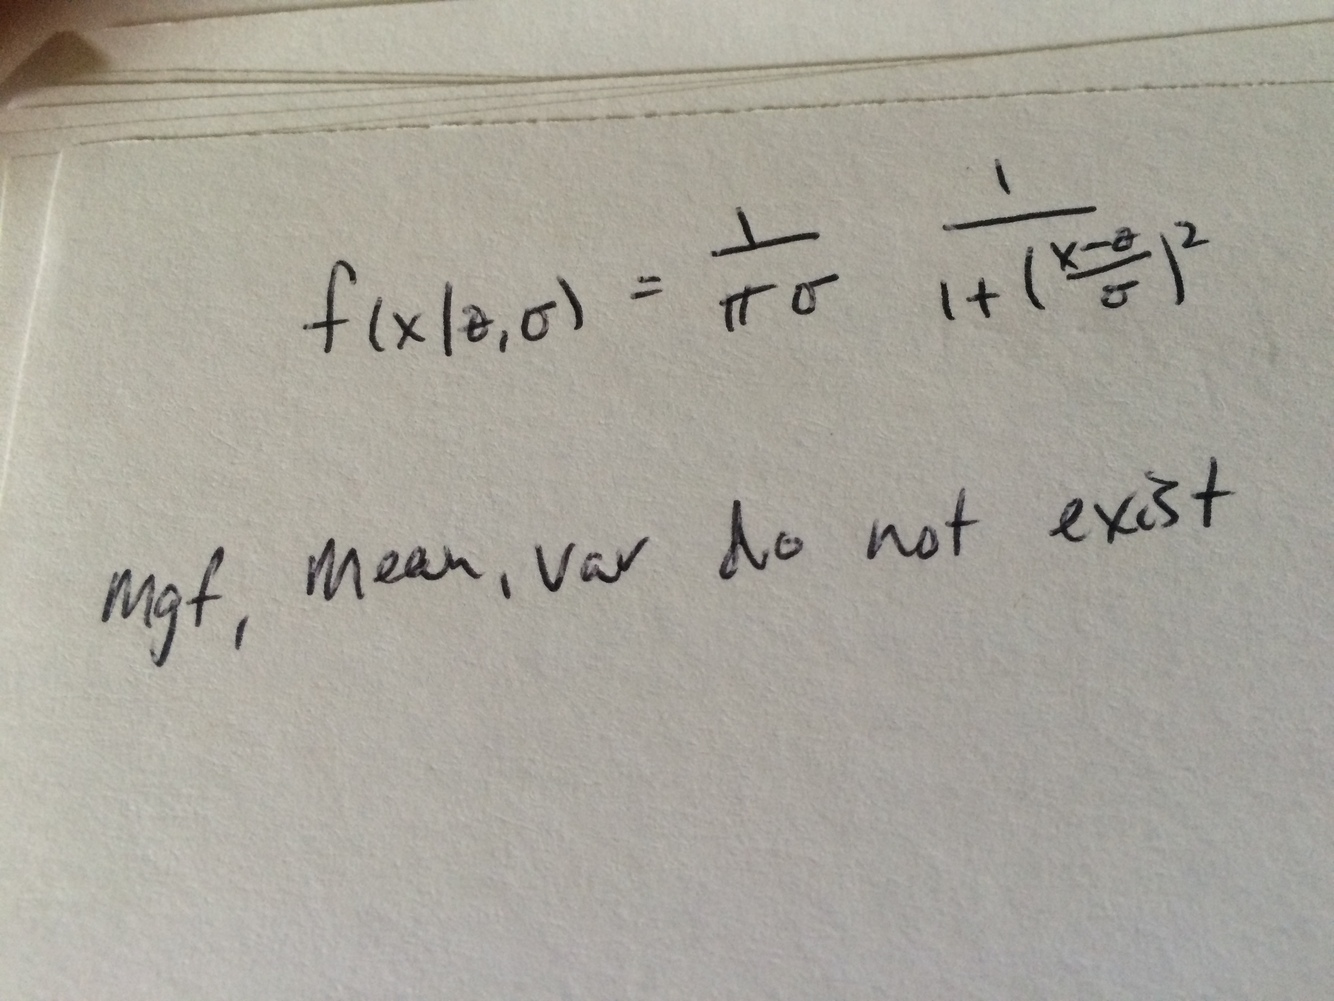 f(x|θ,σ) = 1/(πσ) 1/(1+((x-θ)/σ)²)
mgf, mean, var do not exist